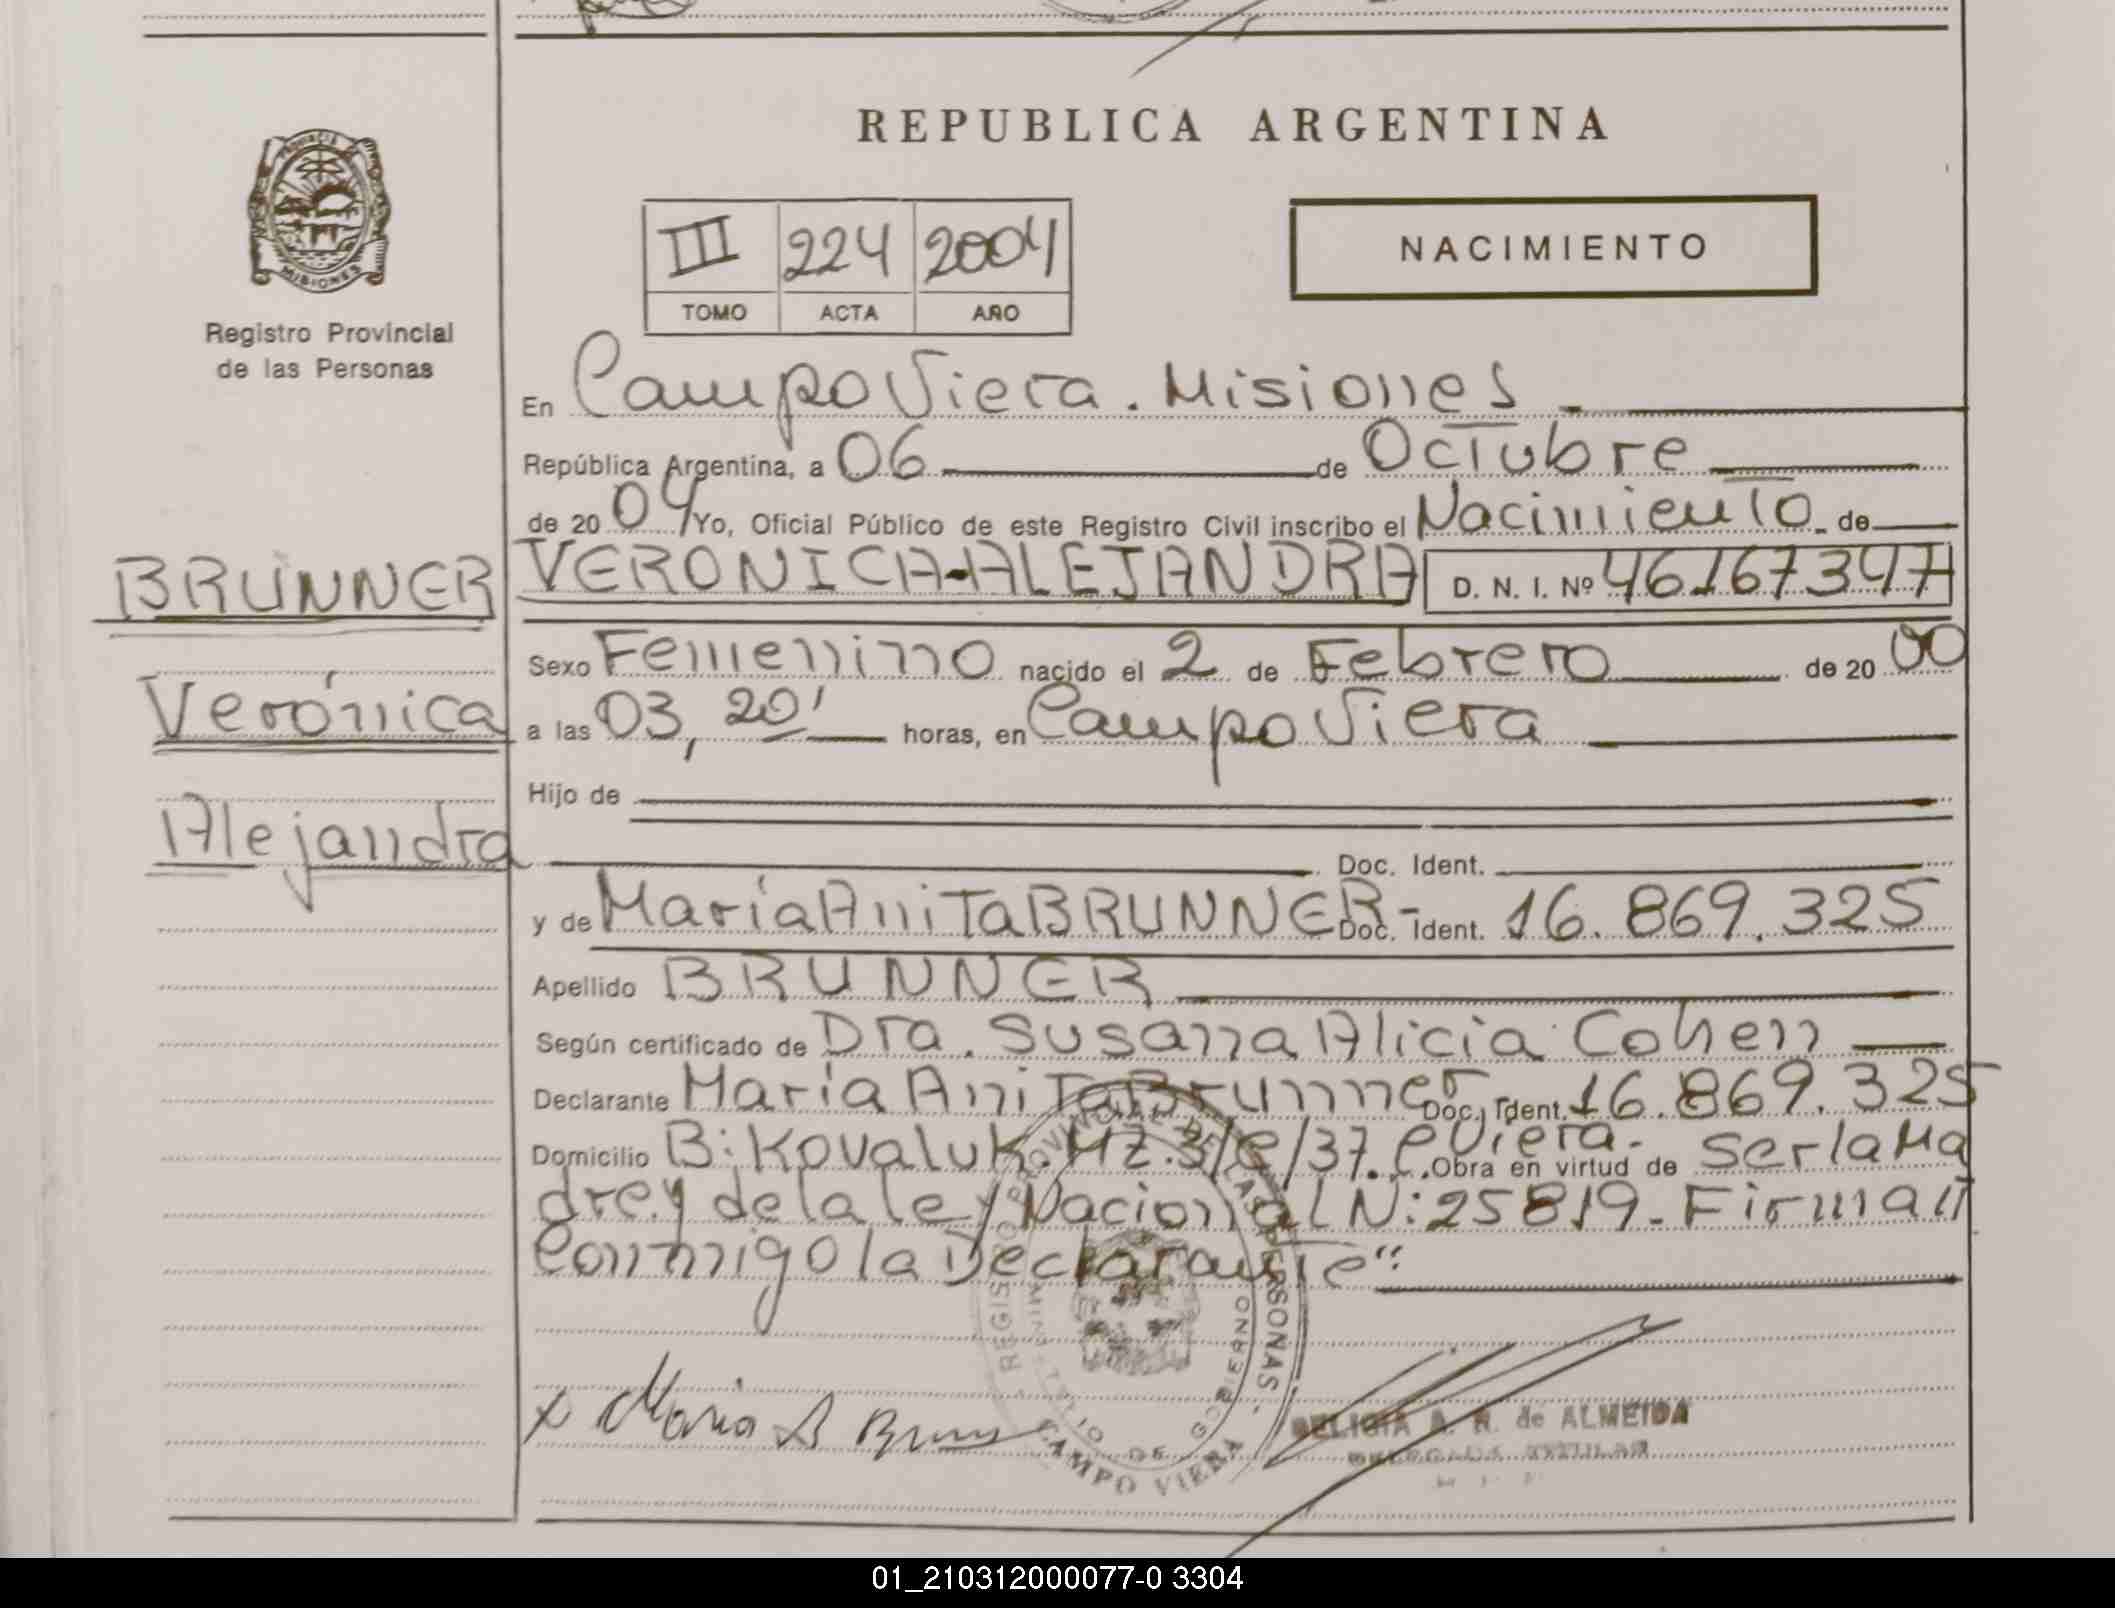 PROVINCIA DE
MISIONES
Registro Provincial
de las Personas
REPUBLICA ARGENTINA
III 224 2004
TOMO ACTA AÑO
NACIMIENTO
En Campo Viera. Misiones
República Argentina, a 06 de Octubre
de 20 04 Yo, Oficial Público de este Registro Civil inscribo el Nacimiento de
BRUNNER VERONICA-ALEJANDRA D. N. I. Nº 46.167.347
Sexo Femenino nacido el 2 de Febrero de 20 00
Verónica a las 03, 20' horas, en Campo Viera
Hijo de
Alejandra Doc. Ident.
y de María Anita BRUNNER- Doc. Ident. 16.869.325
Apellido BRUNNER
Según certificado de Dra. Susana Alicia Cohen
Declarante María Anita Brunner Doc. Ident. 16.869.325
Domicilio B: Kovaluk. Mz. 3/C/37. C. Viera. Obra en virtud de ser la Ma
dre y de la ley Nacional N: 25819. Firman
Conmigo la Declarante"
REGISTRO PROVINCIAL DE LAS PERSONAS
MINISTERIO DE GOBIERNO
CAMPO VIERA
x Maria A Brun
DELIGIA A. R. de ALMEIDA
DELEGADA TITULAR
01_210312000077-0 3304